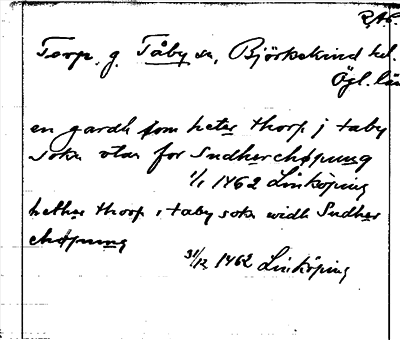 R.A.P.
Torp, g. Tåby sn, Björkekind hd.
Ögl. län
en gardh som heter thorp j taby
sokn vtan for Sudherchøpung
1/1 1462 Linköping
hether thorp i taby sokn widh Sudher
chøpung
31/12 1462 Linköping